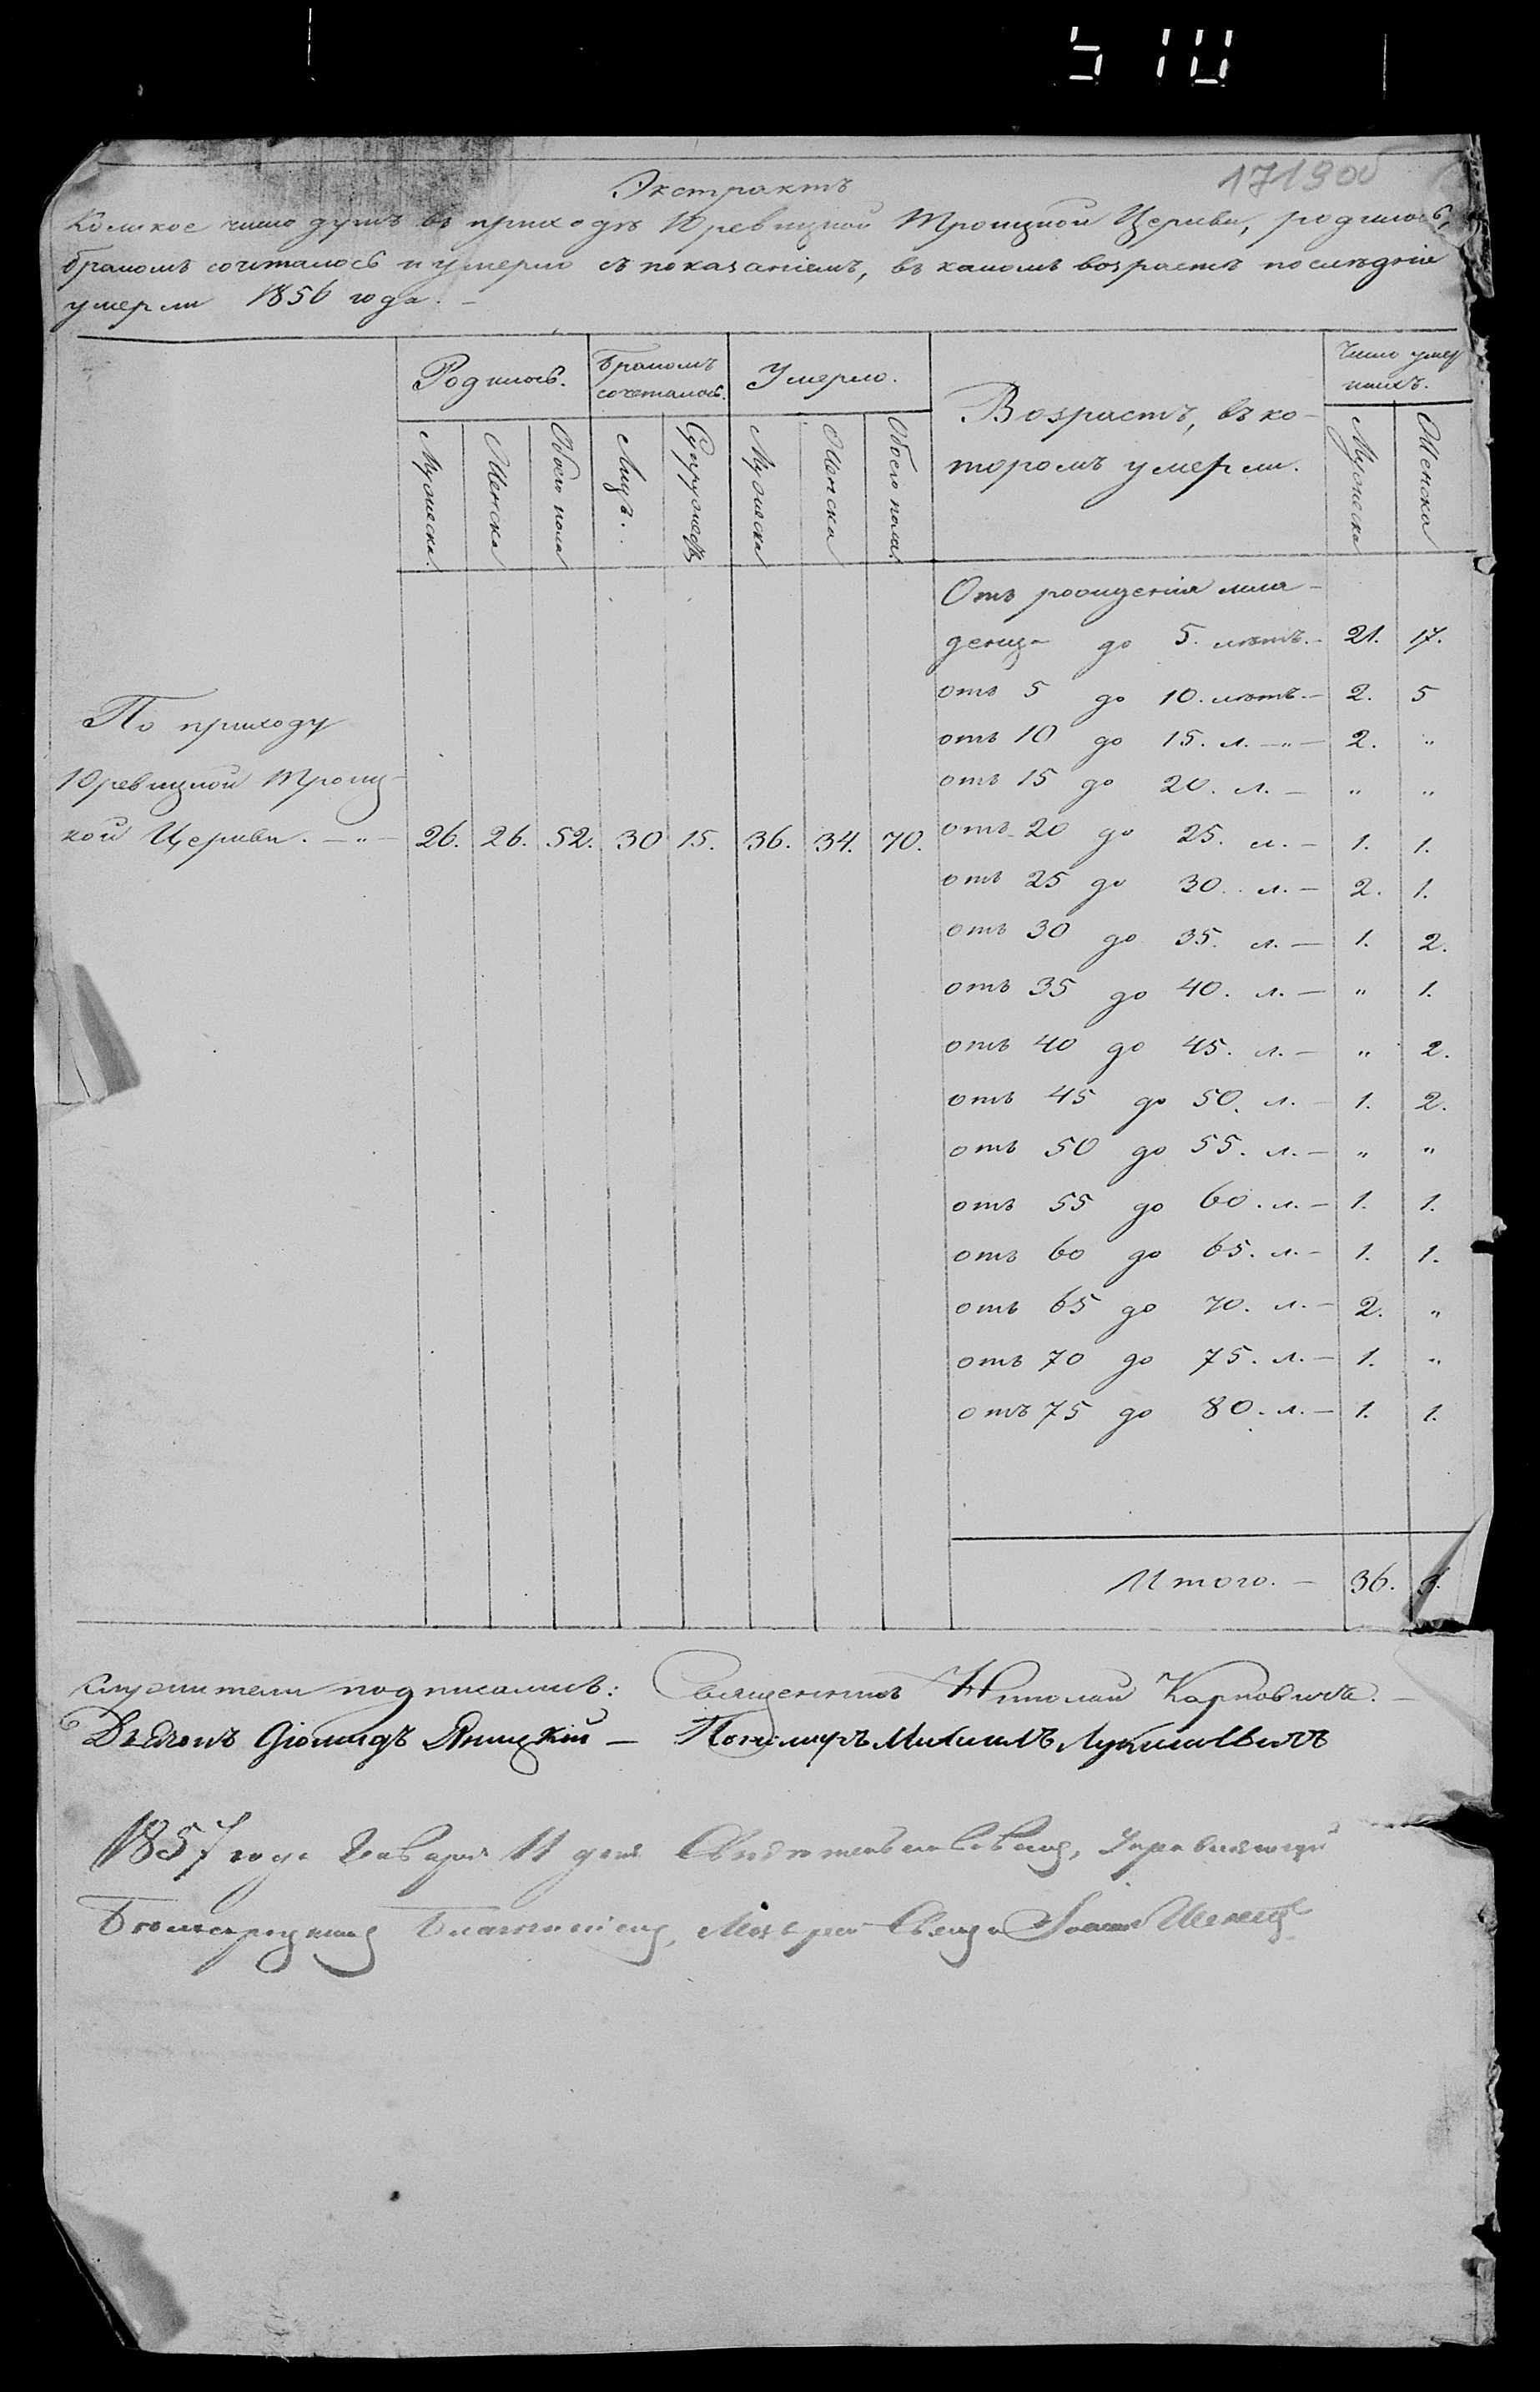 5 10
1719об
Экстрактъ
Коликое число душъ въ приходѣ Юревицкой Троицкой Церкви, родилось,
бракомъ сочеталось и умерло съ показаніемъ, въ какомъ возрастѣ послѣдніе
умерли 1856 года. –
Родилось. Бракомъ сочеталось. Умерло. Возрастъ, въ ко- Число умер
шихъ.
Мужеска. Женска Обоего пола Лицъ. Супружествъ Мужеска Женска Обоего пола. торомъ умерли. Мужеска Женска
Отъ рожденія мла-
денца до 5. лѣтъ. – 21. 17.
отъ 5 до 10. лѣтъ. – 2. 5
отъ 10 до 15. л. – „ – 2. „
отъ 15 до 20. л. – „ „
По приходу
Юревицкой Троиц-
кой Церкви. – „ – 26. 26. 52. 30 15. 36. 34. 70. отъ 20 до 25. л. – 1. 1.
отъ 25 до 30. л. – 2. 1.
отъ 30 до 35. л. – 1. 2.
отъ 35 до 40. л. – „ 1.
отъ 40 до 45. л. – „ 2.
отъ 45 до 50. л. – 1. 2.
отъ 50 до 55. л. – „ „
отъ 55 до 60. л. – 1. 1.
отъ 60 до 65. л. – 1. 1.
отъ 65 до 70. л. – 2. „
отъ 70 до 75. л. – 1. „
отъ 75 до 80. л. – 1. 1.
Итого. – 36.
служители подписались: Священникъ Николай Карповичъ. –
Дьяконъ Діомидъ Яницкій – Пономарь Михаилъ Лукашевичъ
1857 года Января 11 дня Свидѣтельствовалъ, Управляющій
Благочиніемъ, Свящ Іоаннъ